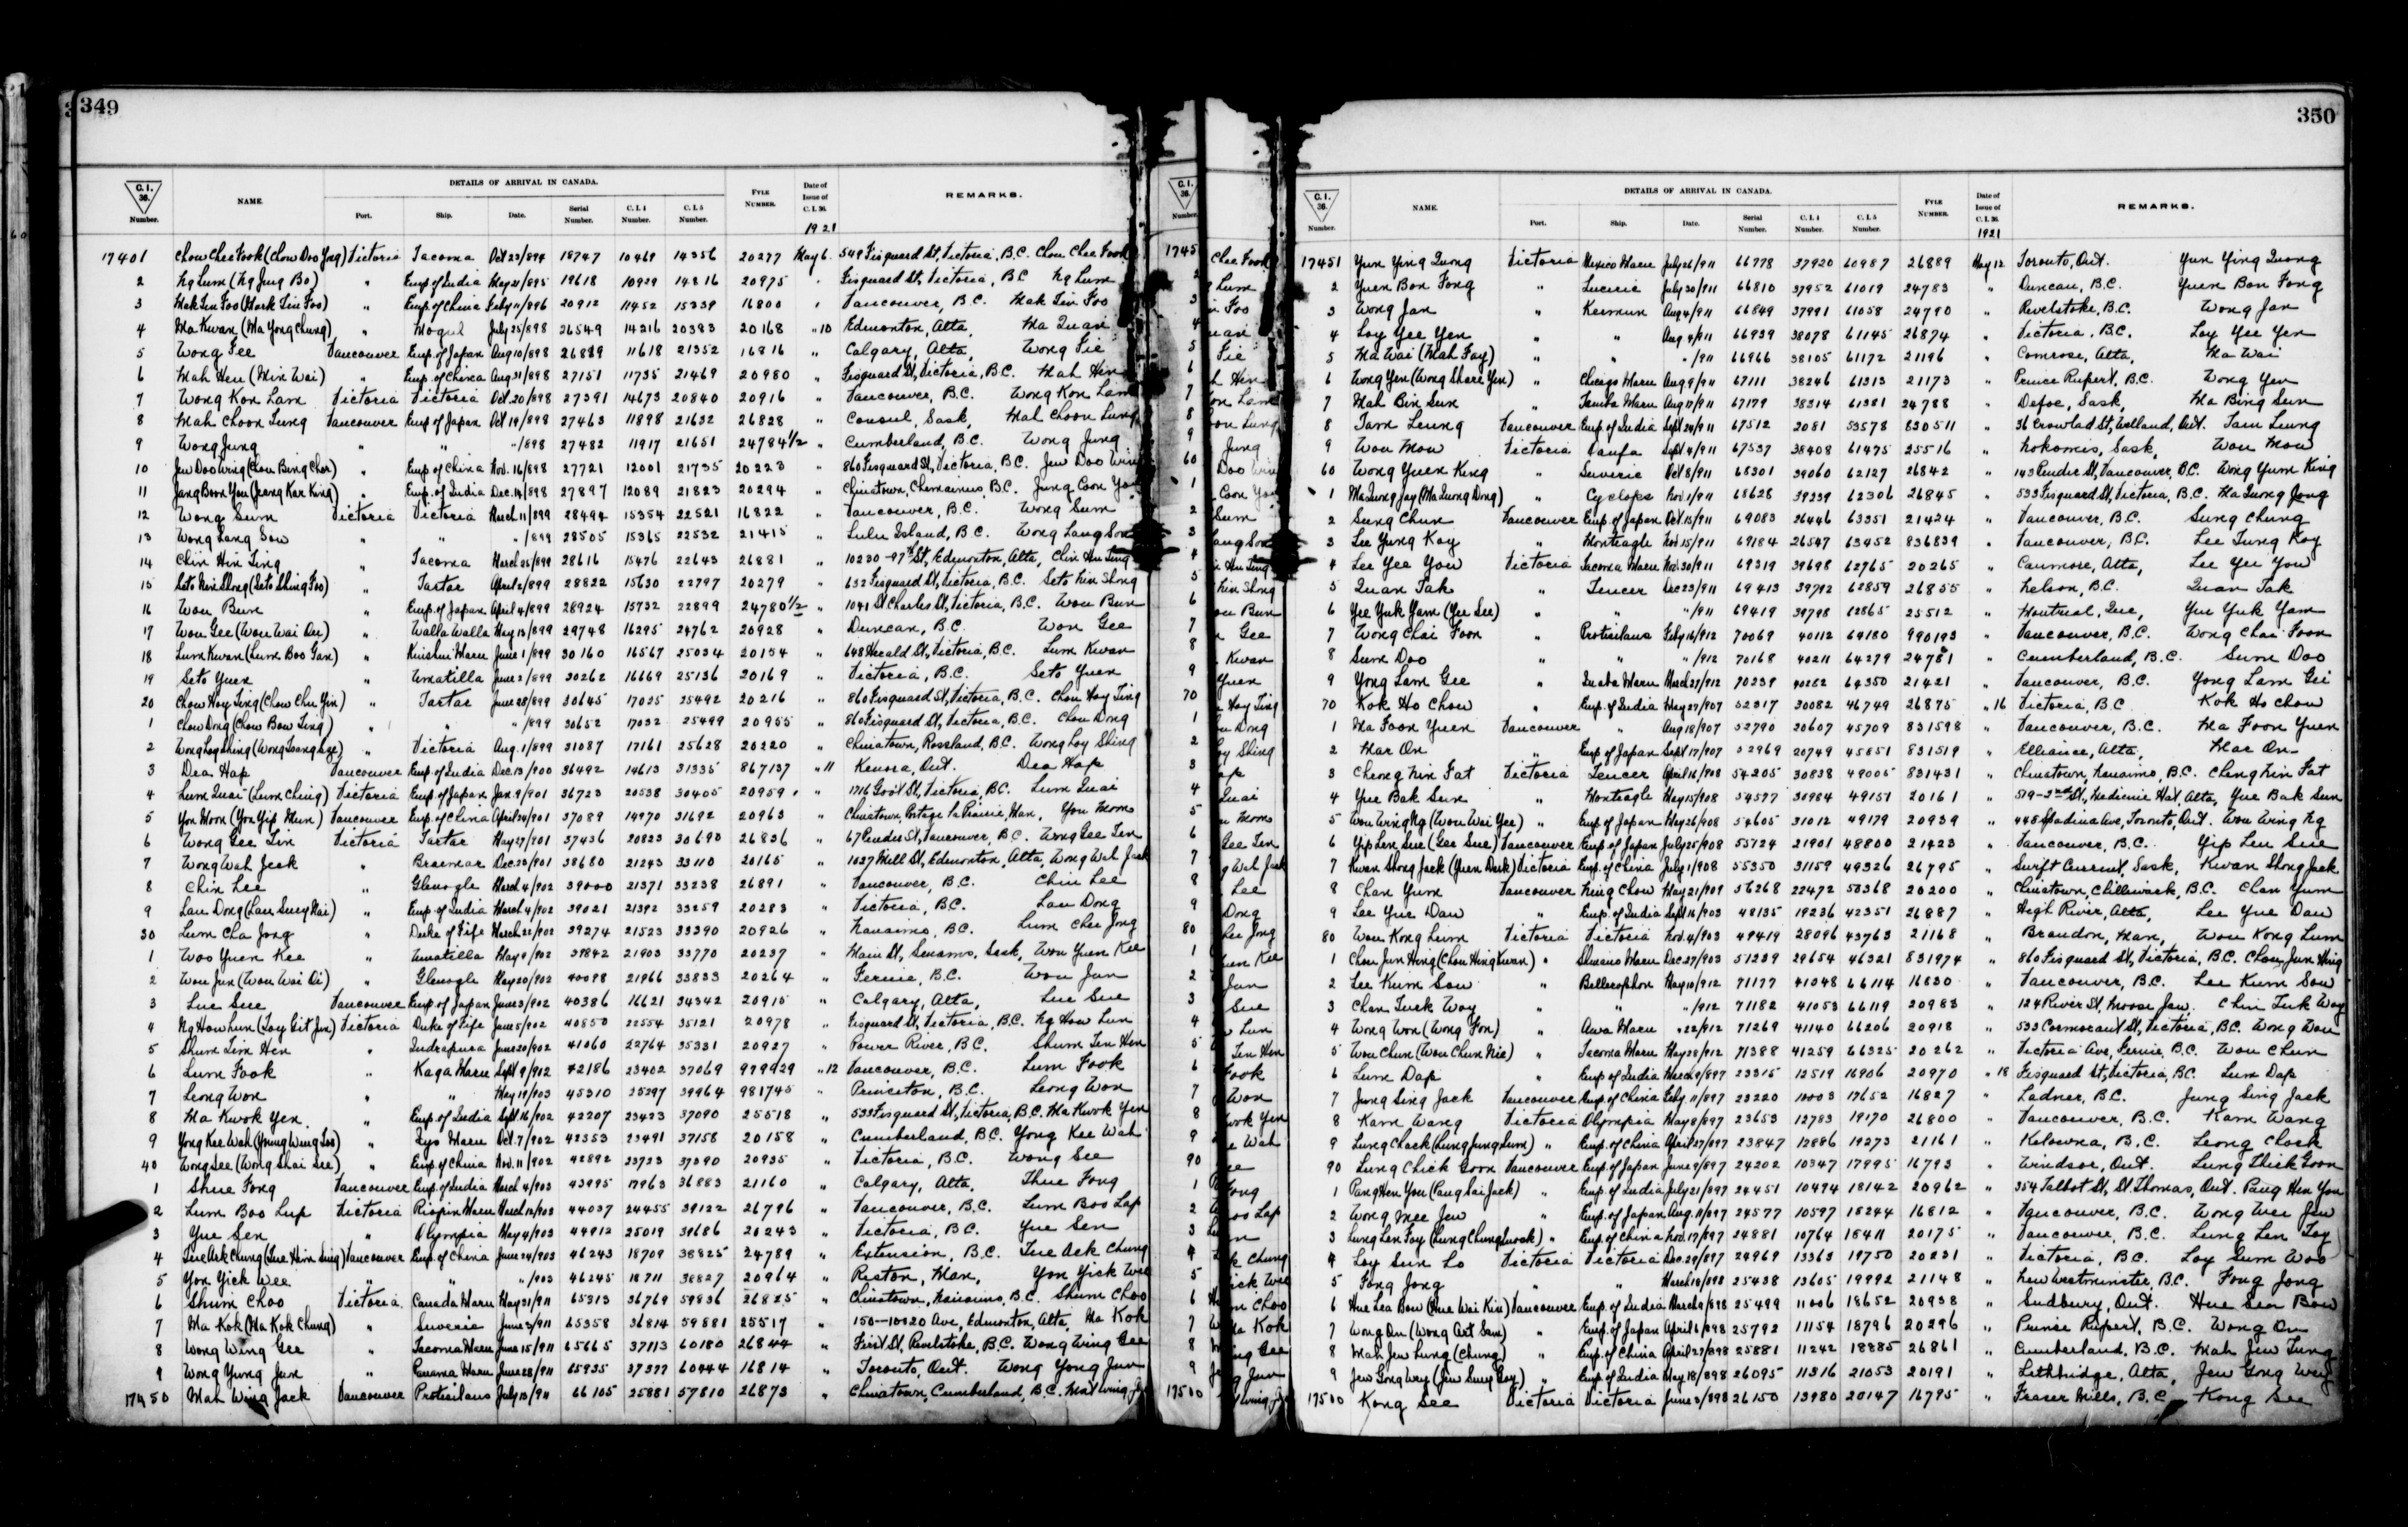 349
C.I. 36. Number. NAME. DETAILS OF ARRIVAL IN CANADA. Port. Ship. Date. Serial Number. C.I.4 Number. C.I.5 Number. FYLE NUMBER. Date of Issue of C.I.36. REMARKS.
1921
17401 Chow Chee Fook (Chow Doo Jong) Victoria Tacoma Oct 23/894 18747 10469 14356 20277 May 6. 549 Fisguard St, Victoria, B.C. Chou Chee Fook
2 Ng Lum (Ng Jung Bo) " Emp. of India May 21/895 19618 10929 14816 20975 Fisguard St, Victoria, B.C. Ng Lum
3 Mak Tin Foo (Mark Tin Foo) " Emp. of China Feby 11/896 20912 11452 15339 16800 Vancouver, B.C. Mak Tin Foo
4 Ma Kwan (Ma Yong Chung) " Mogul July 25/898 26549 14216 20383 20168 " 10 Edmonton, Alta, Ma Quan
5 Wong Gee Vancouver Emp. of Japan Aug 10/898 26889 11618 21352 16816 " Calgary, Alta, Wong Gie
6 Mah Hen (Min Wai) " Emp. of China Aug 31/898 27151 11735 21469 20980 " Fisguard St, Victoria, B.C. Mah Hen
7 Wong Kon Lam Victoria Victoria Oct. 20/898 27391 14673 20840 20916 " Vancouver, B.C. Wong Kon Lam
8 Mah Choon Lung Vancouver Emp. of Japan Oct 19/898 27463 11898 21632 26828 " Consul, Sask, Mah Choon Lung
9 Wong Jung " " "/898 27482 11917 21651 24784 1/2 " Cumberland, B.C. Wong Jung
10 Jew Doo Wing (Chou Bing Chor) " Emp. of China Nov. 16/898 27721 12001 21735 20223 " 860 Fisguard St, Victoria, B.C. Jew Doo Wing
11 Jang Boon You (Jeong Kar King) " Emp. of India Dec. 14/898 27897 12089 21823 20294 " Chinatown, Chemainus, B.C. Jung Coon You
12 Wong Sum Victoria Victoria March 11/899 28494 15354 22521 16822 " Vancouver, B.C. Wong Sum
13 Wong Lang Sow " " "/899 28505 15365 22532 21415 " Lulu Island, B.C. Wong Lang Son
14 Chin Hin Ting " Tacoma March 26/899 28616 15476 22643 26881 " 10230-97th St, Edmonton, Alta, Chin Hin Ting
15 Seto Nin Shong (Seto Shing Foo) " Tartar April 2/899 28822 15630 22797 20279 " 632 Fisguard St, Victoria, B.C. Seto Nin Shong
16 Wou Bun " Emp. of Japan April 4/899 28924 15732 22899 24780 1/2 " 1041 St Charles St, Victoria, B.C. Wou Bun
17 Wou Gee (Wou Wai Au) " Walla Walla May 13/899 29748 16295 24762 20928 " Duncan, B.C. Won Gee
18 Lum Kwan (Lum Boo Gan) " Kinshui Maru June 1/899 30160 16567 25034 20154 " 648 Herald St, Victoria, B.C. Lum Kwan
19 Seto Yuen " Umatilla June 2/899 30262 16669 25136 20169 " Victoria, B.C. Seto Yuen
20 Chow Hoy Ting (Chow Chu Yin) " Tartar June 28/899 30645 17025 25492 20216 " 860 Fisguard St, Victoria, B.C. Chou Hoy Ting
1 Chow Dong (Chow Bow Ting) " " "/899 30652 17032 25499 20955 " 860 Fisguard St, Victoria, B.C. Chou Dong
2 Wong Loy Shing (Wong Loong Sze) " Victoria Aug. 1/899 31087 17161 25628 20220 " Chinatown, Rossland, B.C. Wong Loy Shing
3 Dea Hap Vancouver Emp. of India Dec. 13/900 36492 14613 31335 867137 " 11 Kenora, Ont. Dea Hap
4 Lum Quai (Lum Ching) Victoria Emp. of Japan Jan. 9/901 36723 20538 30405 20959 " 1716 Gov't St, Victoria, B.C. Lum Quai
5 You Moon (You Yip Mun) Vancouver Emp. of China April 24/901 37089 14970 31692 20963 " Chinatown, Portage la Prairie, Man, You Mom
6 Wong Gee Tin Victoria Tartar May 27/901 37436 20823 30690 26836 " 67 Pender St, Vancouver, B.C. Wong Gee Ten
7 Wong Wah Jack " Braemar Dec. 20/901 38680 21243 33110 20165 " 1027 Mill St, Edmonton, Alta, Wong Wah Jack
8 Chin Lee " Glenogle March 4/902 39000 21371 33238 26891 " Vancouver, B.C. Chin Lee
9 Lau Dong (Lau Sung Hai) " Emp. of India March 4/902 39021 21392 33259 20283 " Victoria, B.C. Lau Dong
30 Lum Cha Jong " Duke of Fife March 22/902 39274 21523 33390 20926 " Nanaimo, B.C. Lum Chu Jong
1 Woo Yuen Kee " Umatilla May 9/902 39842 21903 33770 20237 " Main St, Senlac, Sask, Won Yuen Kee
2 Wou Jun (Wou Wai Di) " Glenogle May 20/902 40098 21966 33833 20264 " Fernie, B.C. Wou Jun
3 Lue Sue Vancouver Emp. of Japan June 3/902 40386 16621 34342 20915 " Calgary, Alta, Lue Sue
4 Ng How Lun (Loy Git Jin) Victoria Duke of Fife June 5/902 40850 22554 35121 20978 " Fisguard St, Victoria, B.C. Ng How Lun
5 Shum Tim Hen " Indrapura June 20/902 41060 22764 35331 20927 " Power River, B.C. Shum Ten Hen
6 Lum Fook " Kaga Maru Sept 9/902 42186 23402 37069 979929 " 12 Vancouver, B.C. Lum Fook
7 Leong Won " " May 19/903 45310 25297 39964 981745 " Princeton, B.C. Leong Won
8 Ma Kwok Yen " Emp. of India Sept. 16/902 42207 23423 37090 25518 " 533 Fisguard St, Victoria, B.C. Ma Kwok Yen
9 Yong Kee Wah (Young Wing Loo) " Iyo Maru Oct. 7/902 42353 23491 37158 20158 " Cumberland, B.C. Yong Kee Wah
40 Wong See (Wong Shai See) " Emp. of China Nov. 11/902 42892 23723 37390 20935 " Victoria, B.C. Wong See
1 Shue Fong Vancouver Emp. of India March 4/903 43995 17963 36883 21160 " Calgary, Alta, Shue Fong
2 Lum Boo Lup Victoria Riojun Maru March 12/903 44037 24455 39122 26796 " Vancouver, B.C. Lum Boo Lap
3 Yue Sen " Olympia May 4/903 44912 25019 39686 20243 " Victoria, B.C. Yue Sen
4 Lue Ark Chung (Lue Him Sing) Vancouver Emp. of China June 24/903 46243 18709 38825 24789 " Extension, B.C. Lue Ack Chung
5 Yon Yick Wee " " "/903 46245 18711 38827 20964 " Reston, Man, Yon Yick Wee
6 Shum Choo Victoria Canada Maru May 31/911 65313 36769 59836 26825 " Chinatown, Nanaimo, B.C. Shum Choo
7 Ma Kok (Ma Kok Chung) " Suveric June 3/911 65358 36814 59881 25517 " 150-10020 Ave, Edmonton, Alta, Ma Kok
8 Wong Wing Gee " Tacoma Maru June 15/911 65665 37113 60180 26844 " First St, Revelstoke, B.C. Wong Wing Gee
9 Wong Yung Jun " Panama Maru June 28/911 65935 37377 60444 16814 " Toronto, Ont. Wong Yong Jun
17450 Mah Wing Jack Vancouver Protesilaus July 13/911 66105 25881 57810 26873 " Chinatown, Cumberland, B.C. Mah Wing J
350
C.I. 36. Number. NAME. DETAILS OF ARRIVAL IN CANADA. Port. Ship. Date. Serial Number. C.I.4 Number. C.I.5 Number. FYLE NUMBER. Date of Issue of C.I.36. REMARKS.
1921
17451 Yun Ying Quong Victoria Mexico Maru July 26/911 66778 37920 60987 26889 May 12 Toronto, Ont. Yun Ying Quong
2 Yuen Bon Fong " Luceric July 30/911 66810 37952 61019 24783 " Duncan, B.C. Yuen Bon Fong
3 Wong Jan " Keemun Aug 4/911 66849 37991 61058 24790 " Revelstoke, B.C. Wong Jan
4 Loy Yee Yen " " Aug 4/911 66939 38078 61145 26874 " Victoria, B.C. Loy Yee Yen
5 Ma Wai (Mah Fay) " " "/911 66966 38105 61172 21196 " Camrose, Alta, Ma Wai
6 Wong Yen (Wong Share Yen) " Chicago Maru Aug. 9/911 67111 38246 61313 21173 " Prince Rupert, B.C. Wong Yen
7 Mah Bin Sun " Tamba Maru Aug 17/911 67179 38314 61381 24788 " Defoe, Sask, Ma Bing Sun
8 Tam Leung Vancouver Emp. of India Sept 24/911 67512 2081 53578 830511 " 36 Crowland St, Welland, Ont. Tam Leung
9 Wou Mow Victoria Oanfa Sept 4/911 67537 38408 61475 25516 " Nokomis, Sask, Wou Mow
60 Wong Yuen King " Suveric Oct 8/911 68301 39060 62127 26842 " 143 Pender St, Vancouver, B.C. Wong Yum King
1 Ma Quong Jay (Ma Quong Dong) " Cyclops Nov. 1/911 68628 39239 62306 26845 " 533 Fisguard St, Victoria, B.C. Ma Quong Jong
2 Sung Chun Vancouver Emp. of Japan Oct. 15/911 69083 26446 63351 21424 " Vancouver, B.C. Sung Chung
3 Lee Yung Kay " Monteagle Nov 15/911 69184 26547 63452 836839 " Vancouver, B.C. Lee Tung Kay
4 Lee Yee You Victoria Tacoma Maru Nov. 30/911 69319 39698 62765 20265 " Canmore, Alta, Lee Yee You
5 Quan Tak " Teucer Dec 23/911 69413 39792 62859 26855 " Nelson, B.C. Quan Tak
6 Yee Yuk Yam (Yee See) " " "/911 69419 39798 62865 25512 " Montreal, Que, Yee Yuk Yam
7 Wong Chai Foon " Protesilaus Feby 16/912 70069 40112 64180 990193 " Vancouver, B.C. Wong Chai Foon
8 Sum Doo " " "/912 70168 40211 64279 24781 " Cumberland, B.C. Sum Doo
9 Yong Lam Gee " Inaba Maru March 27/912 70239 40282 64350 21421 " Vancouver, B.C. Yong Lam Gei
70 Kok Ho Chow " Emp. of India May 27/907 52317 30082 46749 26875 " 16 Victoria, B.C. Kok Ho Chow
1 Ma Foon Yuen Vancouver " Aug 18/907 52790 20607 45709 831598 " Vancouver, B.C. Ma Foon Yuen
2 Mar On " Emp. of Japan Sept 17/907 52969 20749 45851 831519 " Alliance, Alta, Mar On
3 Cheong Nin Fat Victoria Teucer April 16/908 54205 30838 49005 831431 " Chinatown, Nanaimo, B.C. Cheng Nin Fat
4 Yue Bak Sun " Monteagle May 15/908 54577 30984 49151 20161 " 519-3rd St, Medicine Hat, Alta, Yue Bak Sun
5 Wou Wing Ng (Wou Wai Yee) " Emp. of Japan May 26/908 54605 31012 49179 20939 " 445 Spadina Ave, Toronto, Ont. Wou Wing Ng
6 Yip Len Sue (Gee Sue) Vancouver Emp. of Japan July 25/908 55724 21901 48800 21423 " Vancouver, B.C. Yip Len Sue
7 Kwan Shong Jack (Yuen Dark) Victoria Emp. of China July 1/908 55350 31159 49326 26795 " Swift Current, Sask, Kwan Shong Jack
8 Chan Yum Vancouver Ning Chow May 21/909 56268 22472 50368 20200 " Chinatown, Chilliwack, B.C. Chan Yum
9 Lee Yue Dan " Emp. of India Sept 16/903 48135 19236 42351 26887 " High River, Alta, Lee Yue Dan
80 Wou Kong Lum Victoria Victoria Nov. 4/903 49419 28096 43763 21168 " Brandon, Man, Wou Kong Lum
1 Chou Jun Hing (Chou Hing Kwan) " Shinano Maru Dec. 27/903 51239 29654 46321 831974 " 860 Fisguard St, Victoria, B.C. Chou Jun Hing
2 Lee Kum Sou " Bellerophon May 10/912 71177 41048 66114 16830 " Vancouver, B.C. Lee Kum Sou
3 Chan Tuck Way " " "/912 71182 41053 66119 20983 " 124 River St, Moose Jaw, Chin Tuk Way
4 Wong Won (Wong Fon) " Awa Maru " 22/912 71269 41140 66206 20918 " 533 Cormorant St, Victoria, B.C. Wong Won
5 Wou Chun (Wou Chun Nie) " Tacoma Maru May 28/912 71388 41259 66325 20262 " Victoria Ave, Fernie, B.C. Wou Chun
6 Lum Dap " Emp. of India March 9/897 23315 12519 16906 20970 " 18 Fisguard St, Victoria, B.C. Lum Dap
7 Jung Sing Jack Vancouver Emp. of China Feby. 11/897 23220 10003 17652 16827 " Ladner, B.C. Jung Sing Jack
8 Kam Wang Victoria Olympia May 8/897 23653 12783 19170 26800 " Vancouver, B.C. Kam Wang
9 Lung Chack (Lung Jung Lum) " Emp. of China April 27/897 23847 12886 19273 21161 " Kelowna, B.C. Leong Chack
90 Lung Chick Goon Vancouver Emp. of Japan June 9/897 24202 10347 17995 16793 " Windsor, Ont. Lung Thick Goon
1 Pang Hen You (Pang Sai Jack) " Emp. of India July 21/897 24451 10494 18142 20962 " 354 Talbot St, St Thomas, Ont. Pang Hen You
2 Wong Mee Jew " Emp. of Japan Aug. 11/897 24577 10597 18244 16812 " Vancouver, B.C. Wong Wee Jew
3 Lung Len Foy (Lung Chung Quock) " Emp. of China Nov. 17/897 24881 10764 18411 20175 " Vancouver, B.C. Lung Len Toy
4 Loy Sun Lo Victoria Victoria Dec. 29/897 24969 13363 19750 20231 " Victoria, B.C. Loy Sum Woo
5 Fong Jong " " March 18/898 25438 13605 19992 21148 " New Westminster, B.C. Fong Jong
6 Hue Sea Bow (Hue Wai Kin) Vancouver Emp. of India March 9/898 25499 11006 18652 20938 " Sudbury, Ont. Hue Sea Bow
7 Wong On (Wong Art Sam) " Emp. of Japan April 6/898 25792 11154 18796 20296 " Prince Rupert, B.C. Wong On
8 Mah Jew Lung (Chung) " Emp. of China April 27/898 25881 11242 18885 26861 " Cumberland, B.C. Mah Jew Tung
9 Jew Gong Wey (Jew Sung Goy) " Emp. of India May 18/898 26095 11316 21053 20191 " Lethbridge, Alta, Jew Gong Wey
17500 Kong See Victoria Victoria June 3/898 26150 13980 20147 16795 " Fraser Mills, B.C. Kong See